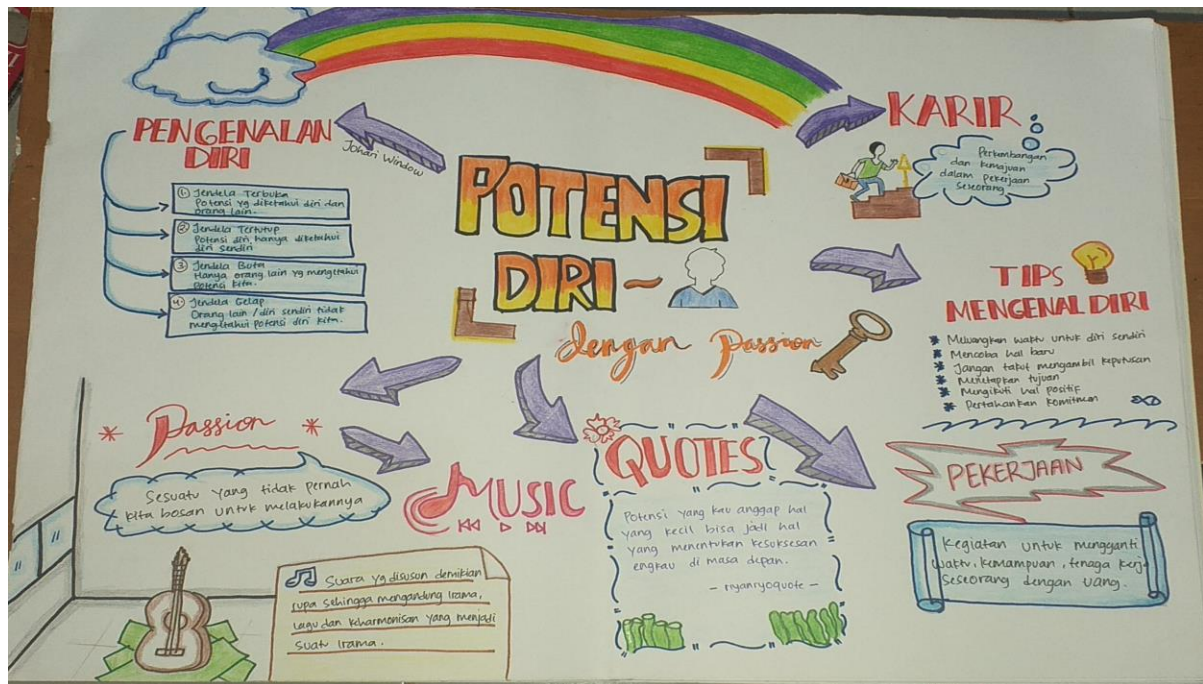 POTENSI
DIRI -
dengan Passion
PENGENALAN
DIRI
Johari Window
1. Jendela Terbuka
Potensi yg diketahui diri dan
orang lain.
2. Jendela Tertutup
Potensi diri hanya diketahui
diri sendiri
3. Jendela Buta
Hanya orang lain yg mengetahui
potensi kita.
4. Jendela Gelap
Orang lain / diri sendiri tidak
mengetahui potensi diri kita.
KARIR
Perkembangan
dan kemajuan
dalam pekerjaan
seseorang
TIPS
MENGENAL DIRI
* Meluangkan waktu untuk diri sendiri
* Mencoba hal baru
* Jangan takut mengambil keputusan
* Menetapkan tujuan
* Mengikuti hal positif
* Pertahankan komitmen
* Passion *
Sesuatu yang tidak pernah
kita bosan untuk melakukannya
MUSIC
Suara yg disusun demikian
rupa sehingga mengandung Irama,
lagu dan keharmonisan yang menjadi
suatu Irama.
QUOTES
Potensi yang kau anggap hal
yang kecil bisa jadi hal
yang menentukan kesuksesan
engkau di masa depan.
- nyanyoquote -
PEKERJAAN
Kegiatan untuk mengganti
waktu, kemampuan, tenaga kerja
seseorang dengan uang.